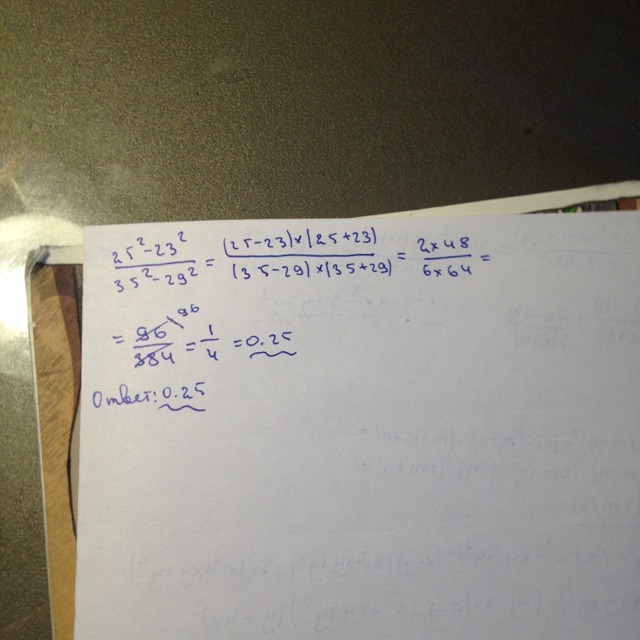 25²-23² / 35²-29² = (25-23)×(25+23) / (35-29)×(35+29) = 2×48 / 6×64 =
= 96 / 384 \96 = 1/4 = 0.25
Ответ: 0.25